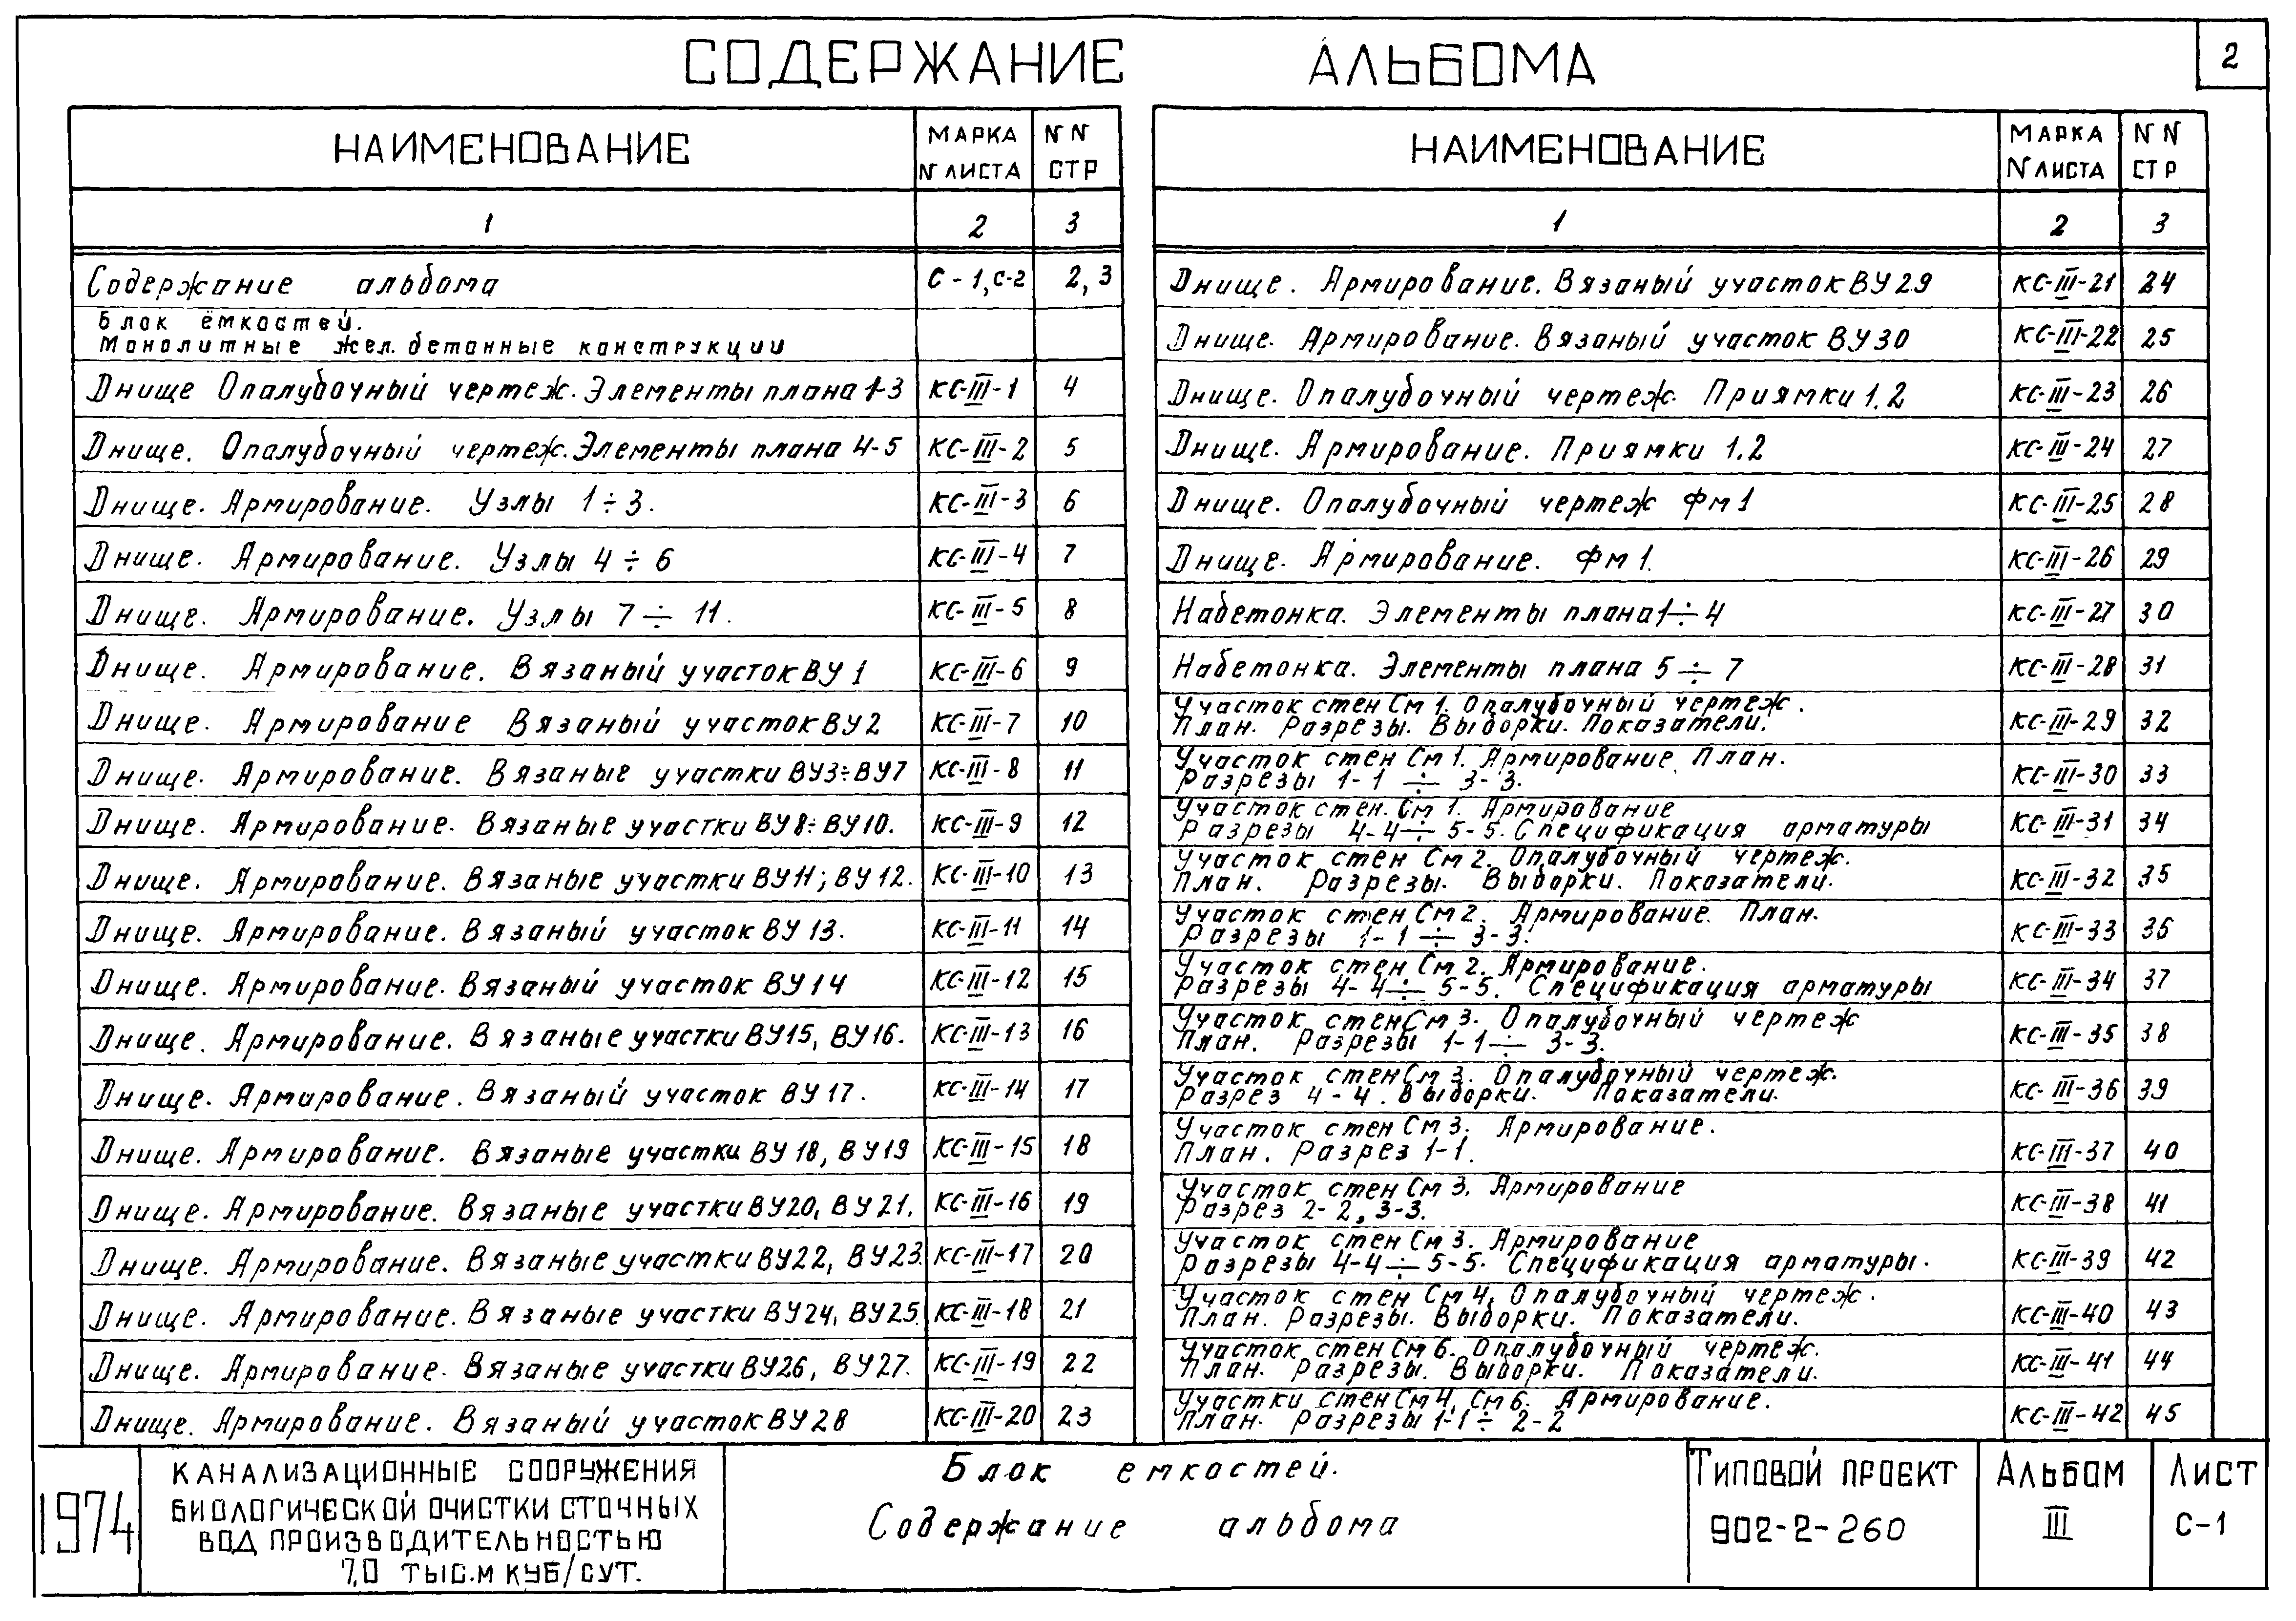 2
СОДЕРЖАНИЕ АЛЬБОМА
НАИМЕНОВАНИЕ МАРКА N ЛИСТА N N СТР
1 2 3
Содержание альбома С-1, С-2 2, 3
Блок ёмкостей.
Монолитные жел. бетонные конструкции
Днище Опалубочный чертеж. Элементы плана 1-3 КС-III-1 4
Днище. Опалубочный чертеж. Элементы плана 4-5 КС-III-2 5
Днище. Армирование. Узлы 1÷3. КС-III-3 6
Днище. Армирование. Узлы 4÷6 КС-III-4 7
Днище. Армирование. Узлы 7÷11. КС-III-5 8
Днище. Армирование. Вязаный участок ВУ1 КС-III-6 9
Днище. Армирование Вязаный участок ВУ2 КС-III-7 10
Днище. Армирование. Вязаные участки ВУ3÷ВУ7 КС-III-8 11
Днище. Армирование. Вязаные участки ВУ8÷ВУ10. КС-III-9 12
Днище. Армирование. Вязаные участки ВУ11; ВУ12. КС-III-10 13
Днище. Армирование. Вязаный участок ВУ13. КС-III-11 14
Днище. Армирование. Вязаный участок ВУ14 КС-III-12 15
Днище. Армирование. Вязаные участки ВУ15, ВУ16. КС-III-13 16
Днище. Армирование. Вязаный участок ВУ17. КС-III-14 17
Днище. Армирование. Вязаные участки ВУ18, ВУ19 КС-III-15 18
Днище. Армирование. Вязаные участки ВУ20, ВУ21. КС-III-16 19
Днище. Армирование. Вязаные участки ВУ22, ВУ23. КС-III-17 20
Днище. Армирование. Вязаные участки ВУ24, ВУ25. КС-III-18 21
Днище. Армирование. Вязаные участки ВУ26, ВУ27. КС-III-19 22
Днище. Армирование. Вязаный участок ВУ28 КС-III-20 23
НАИМЕНОВАНИЕ МАРКА N ЛИСТА N N СТР
1 2 3
Днище. Армирование. Вязаный участок ВУ29 КС-III-21 24
Днище. Армирование. Вязаный участок ВУ30 КС-III-22 25
Днище. Опалубочный чертеж. Приямки 1.2 КС-III-23 26
Днище. Армирование. Приямки 1.2 КС-III-24 27
Днище. Опалубочный чертеж Фм1 КС-III-25 28
Днище. Армирование. Фм1. КС-III-26 29
Набетонка. Элементы плана 1÷4 КС-III-27 30
Набетонка. Элементы плана 5÷7 КС-III-28 31
Участок стен См1. Опалубочный чертеж.
План. Разрезы. Выборки. Показатели. КС-III-29 32
Участок стен См1. Армирование. План.
Разрезы 1-1 ÷ 3-3. КС-III-30 33
Участок стен. См1. Армирование
Разрезы 4-4÷5-5. Спецификация арматуры КС-III-31 34
Участок стен См2. Опалубочный чертеж.
План. Разрезы. Выборки. Показатели. КС-III-32 35
Участок стен См2. Армирование. План.
Разрезы 1-1 ÷ 3-3. КС-III-33 36
Участок стен См2. Армирование.
Разрезы 4-4÷5-5. Спецификация арматуры КС-III-34 37
Участок стен См3. Опалубочный чертеж
План. Разрезы 1-1÷3-3. КС-III-35 38
Участок стен См3. Опалубочный чертеж.
Разрез 4-4. Выборки. Показатели. КС-III-36 39
Участок стен См3. Армирование.
План. Разрез 1-1. КС-III-37 40
Участок стен См3. Армирование
Разрез 2-2, 3-3. КС-III-38 41
Участок стен См3. Армирование
Разрезы 4-4÷5-5. Спецификация арматуры. КС-III-39 42
Участок стен См4. Опалубочный чертеж.
План. Разрезы. Выборки. Показатели. КС-III-40 43
Участок стен См6. Опалубочный чертеж.
План. Разрезы. Выборки. Показатели. КС-III-41 44
Участки стен См4, См6. Армирование.
План. Разрезы 1-1÷2-2 КС-III-42 45
1974
КАНАЛИЗАЦИОННЫЕ СООРУЖЕНИЯ
БИОЛОГИЧЕСКОЙ ОЧИСТКИ СТОЧНЫХ
ВОД ПРОИЗВОДИТЕЛЬНОСТЬЮ
7,0 ТЫС.М КУБ/СУТ.
Блок емкостей.
Содержание альбома
ТИПОВОЙ ПРОЕКТ
902-2-260
АЛЬБОМ
III
ЛИСТ
С-1